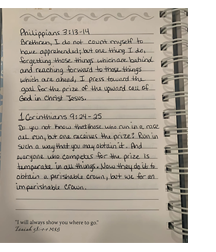 Philippians 3:13-14
Brethren, I do not count myself to
have apprehended; but one thing I do,
forgetting those things which are behind
and reaching forward to those things
which are ahead, I press toward the
goal for the prize of the upward call of
God in Christ Jesus.
1 Corinthians 9:24-25
Do you not know that those who run in a race
all run, but one receives the prize? Run in
such a way that you may obtain it. And
everyone who competes for the prize is
temperate in all things. Now they do it to
obtain a perishable crown, but we for an
imperishable crown.
"I will always show you where to go."
Isaiah